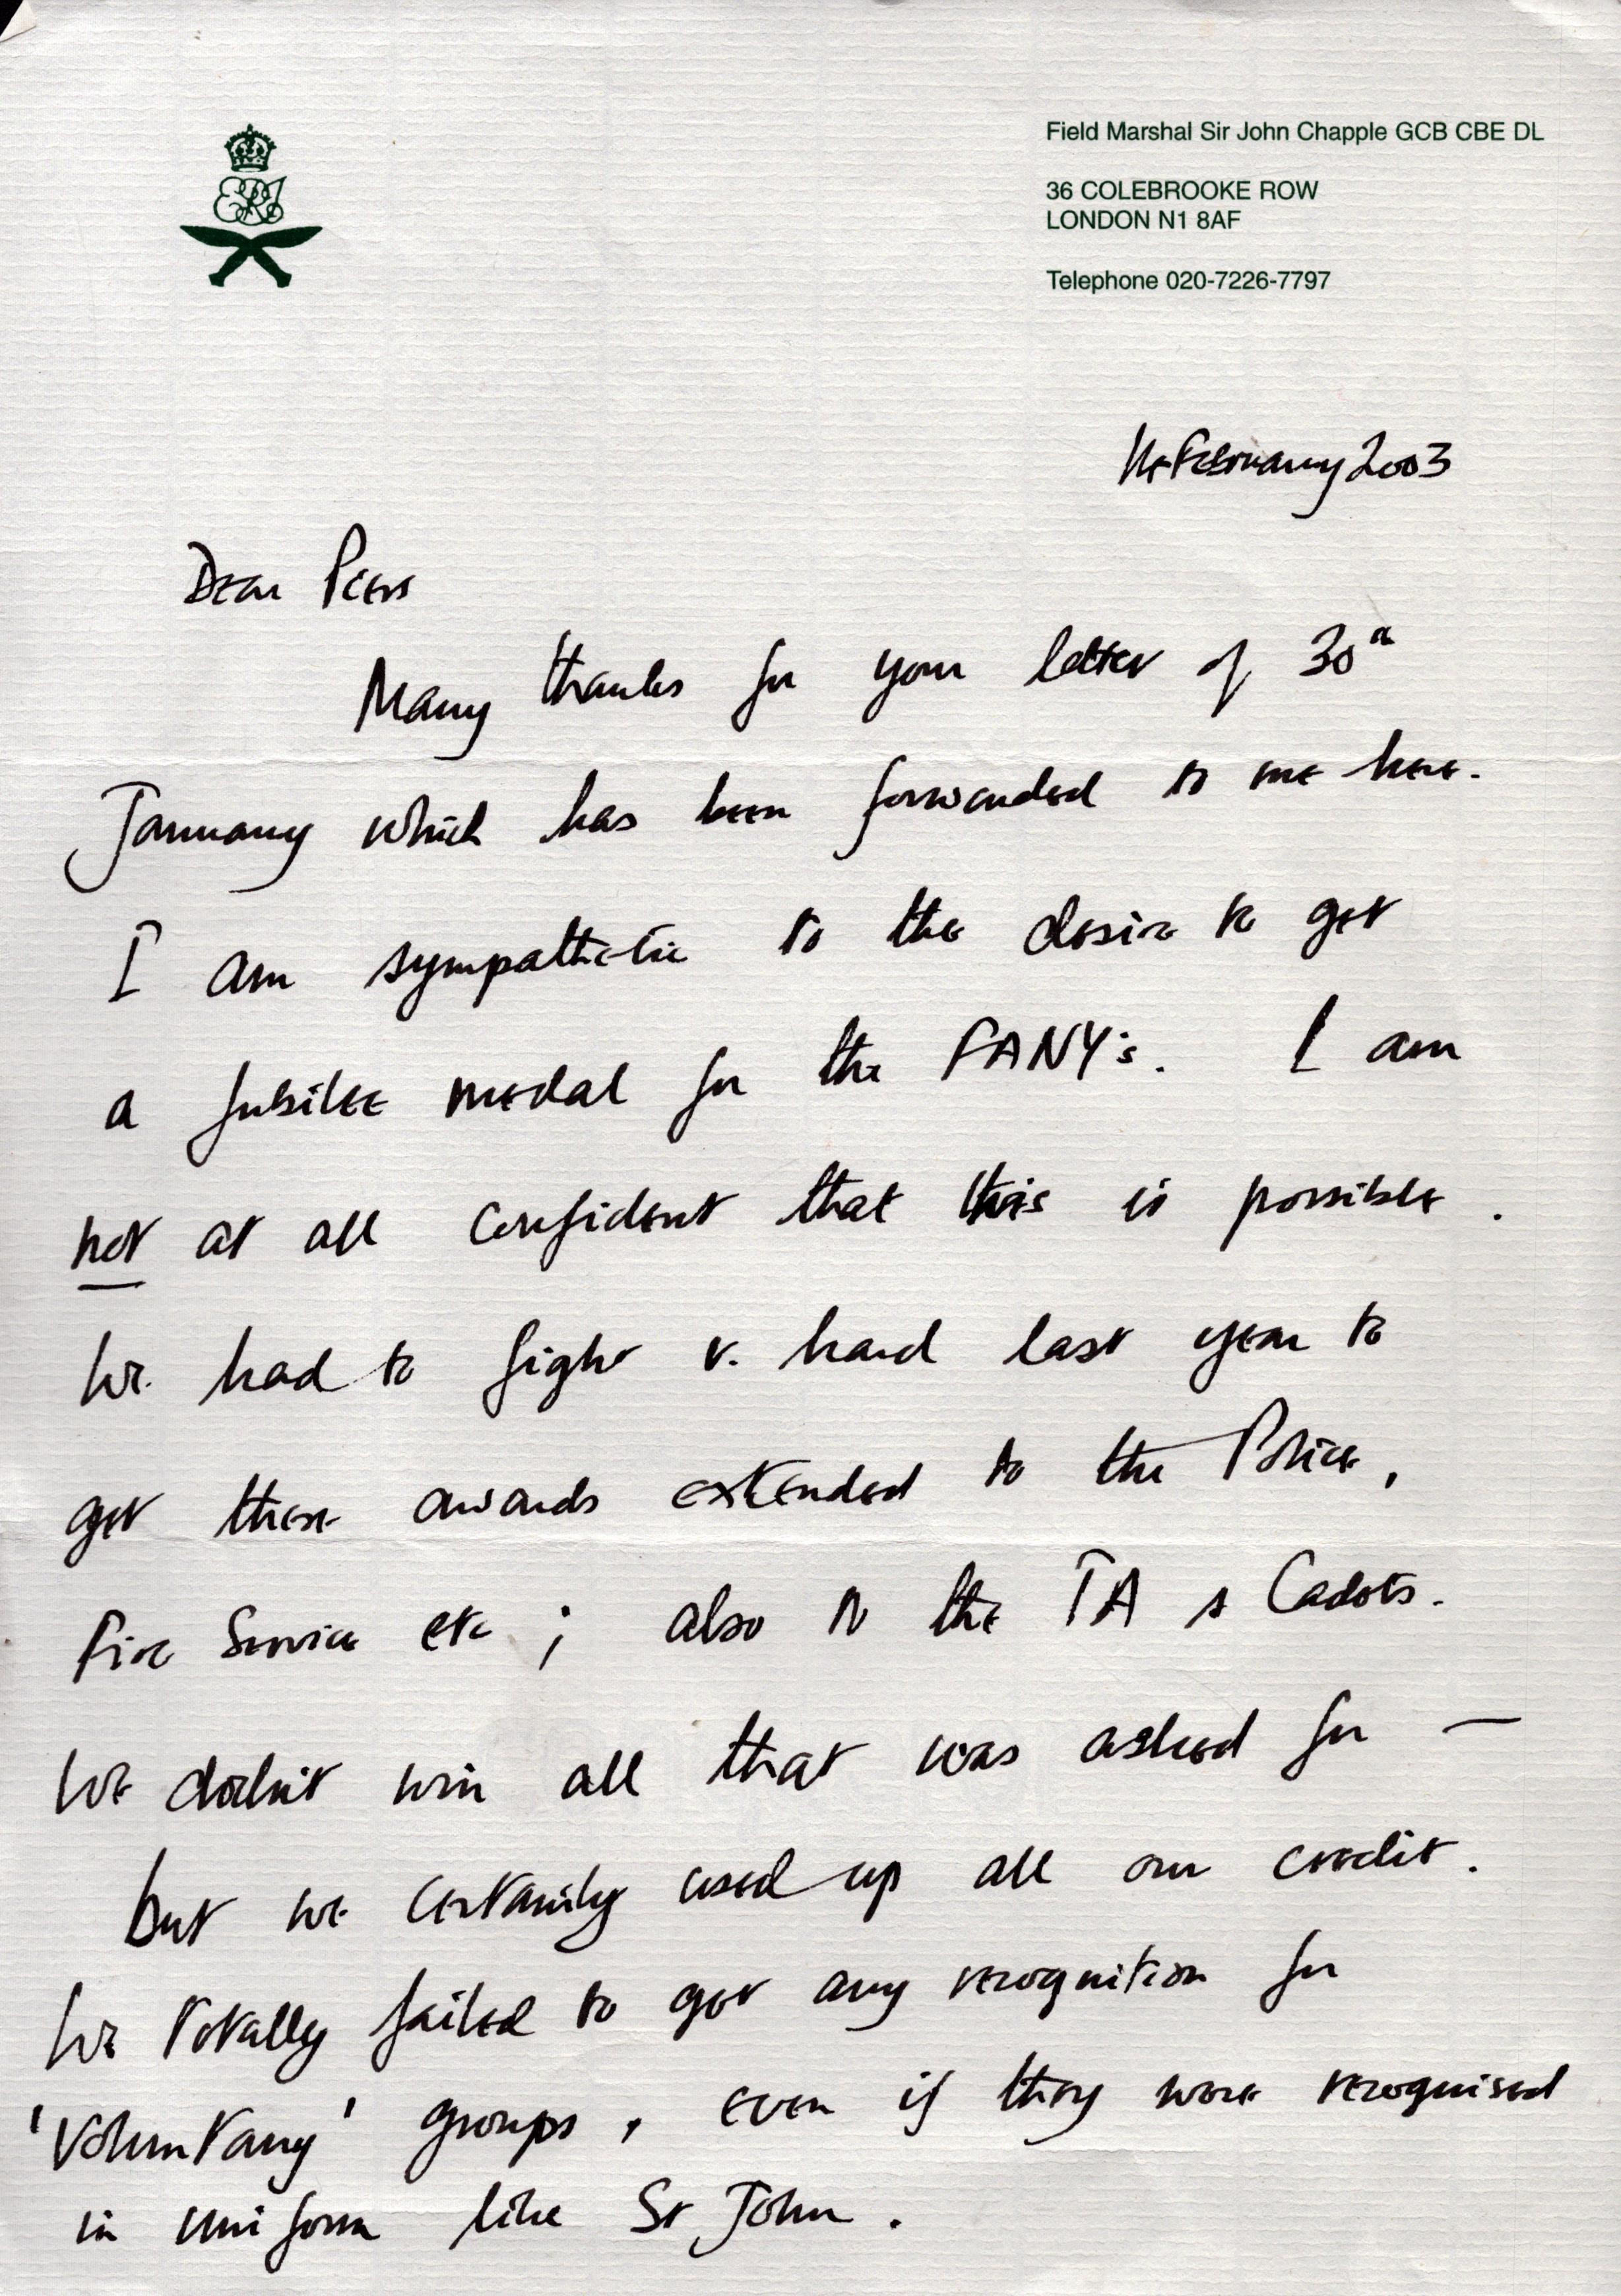 Field Marshal Sir John Chapple GCB CBE DL
36 COLEBROOKE ROW
LONDON N1 8AF
Telephone 020-7226-7797
February 2003
Dear Piers
Many thanks for your letter of 30th
January which has been forwarded to me here.
I am sympathetic to the desire to get
a Jubilee medal for the FANY's. I am
not at all confident that this is possible.
We had to fight v. hard last year to
get these awards extended to the Police,
Fire Service etc; also to the TA & Cadets.
We didn't win all that was asked for —
but we certainly used up all our credit.
We totally failed to get any recognition for
'Voluntary' groups, even if they were recognised
in uniform like St John.